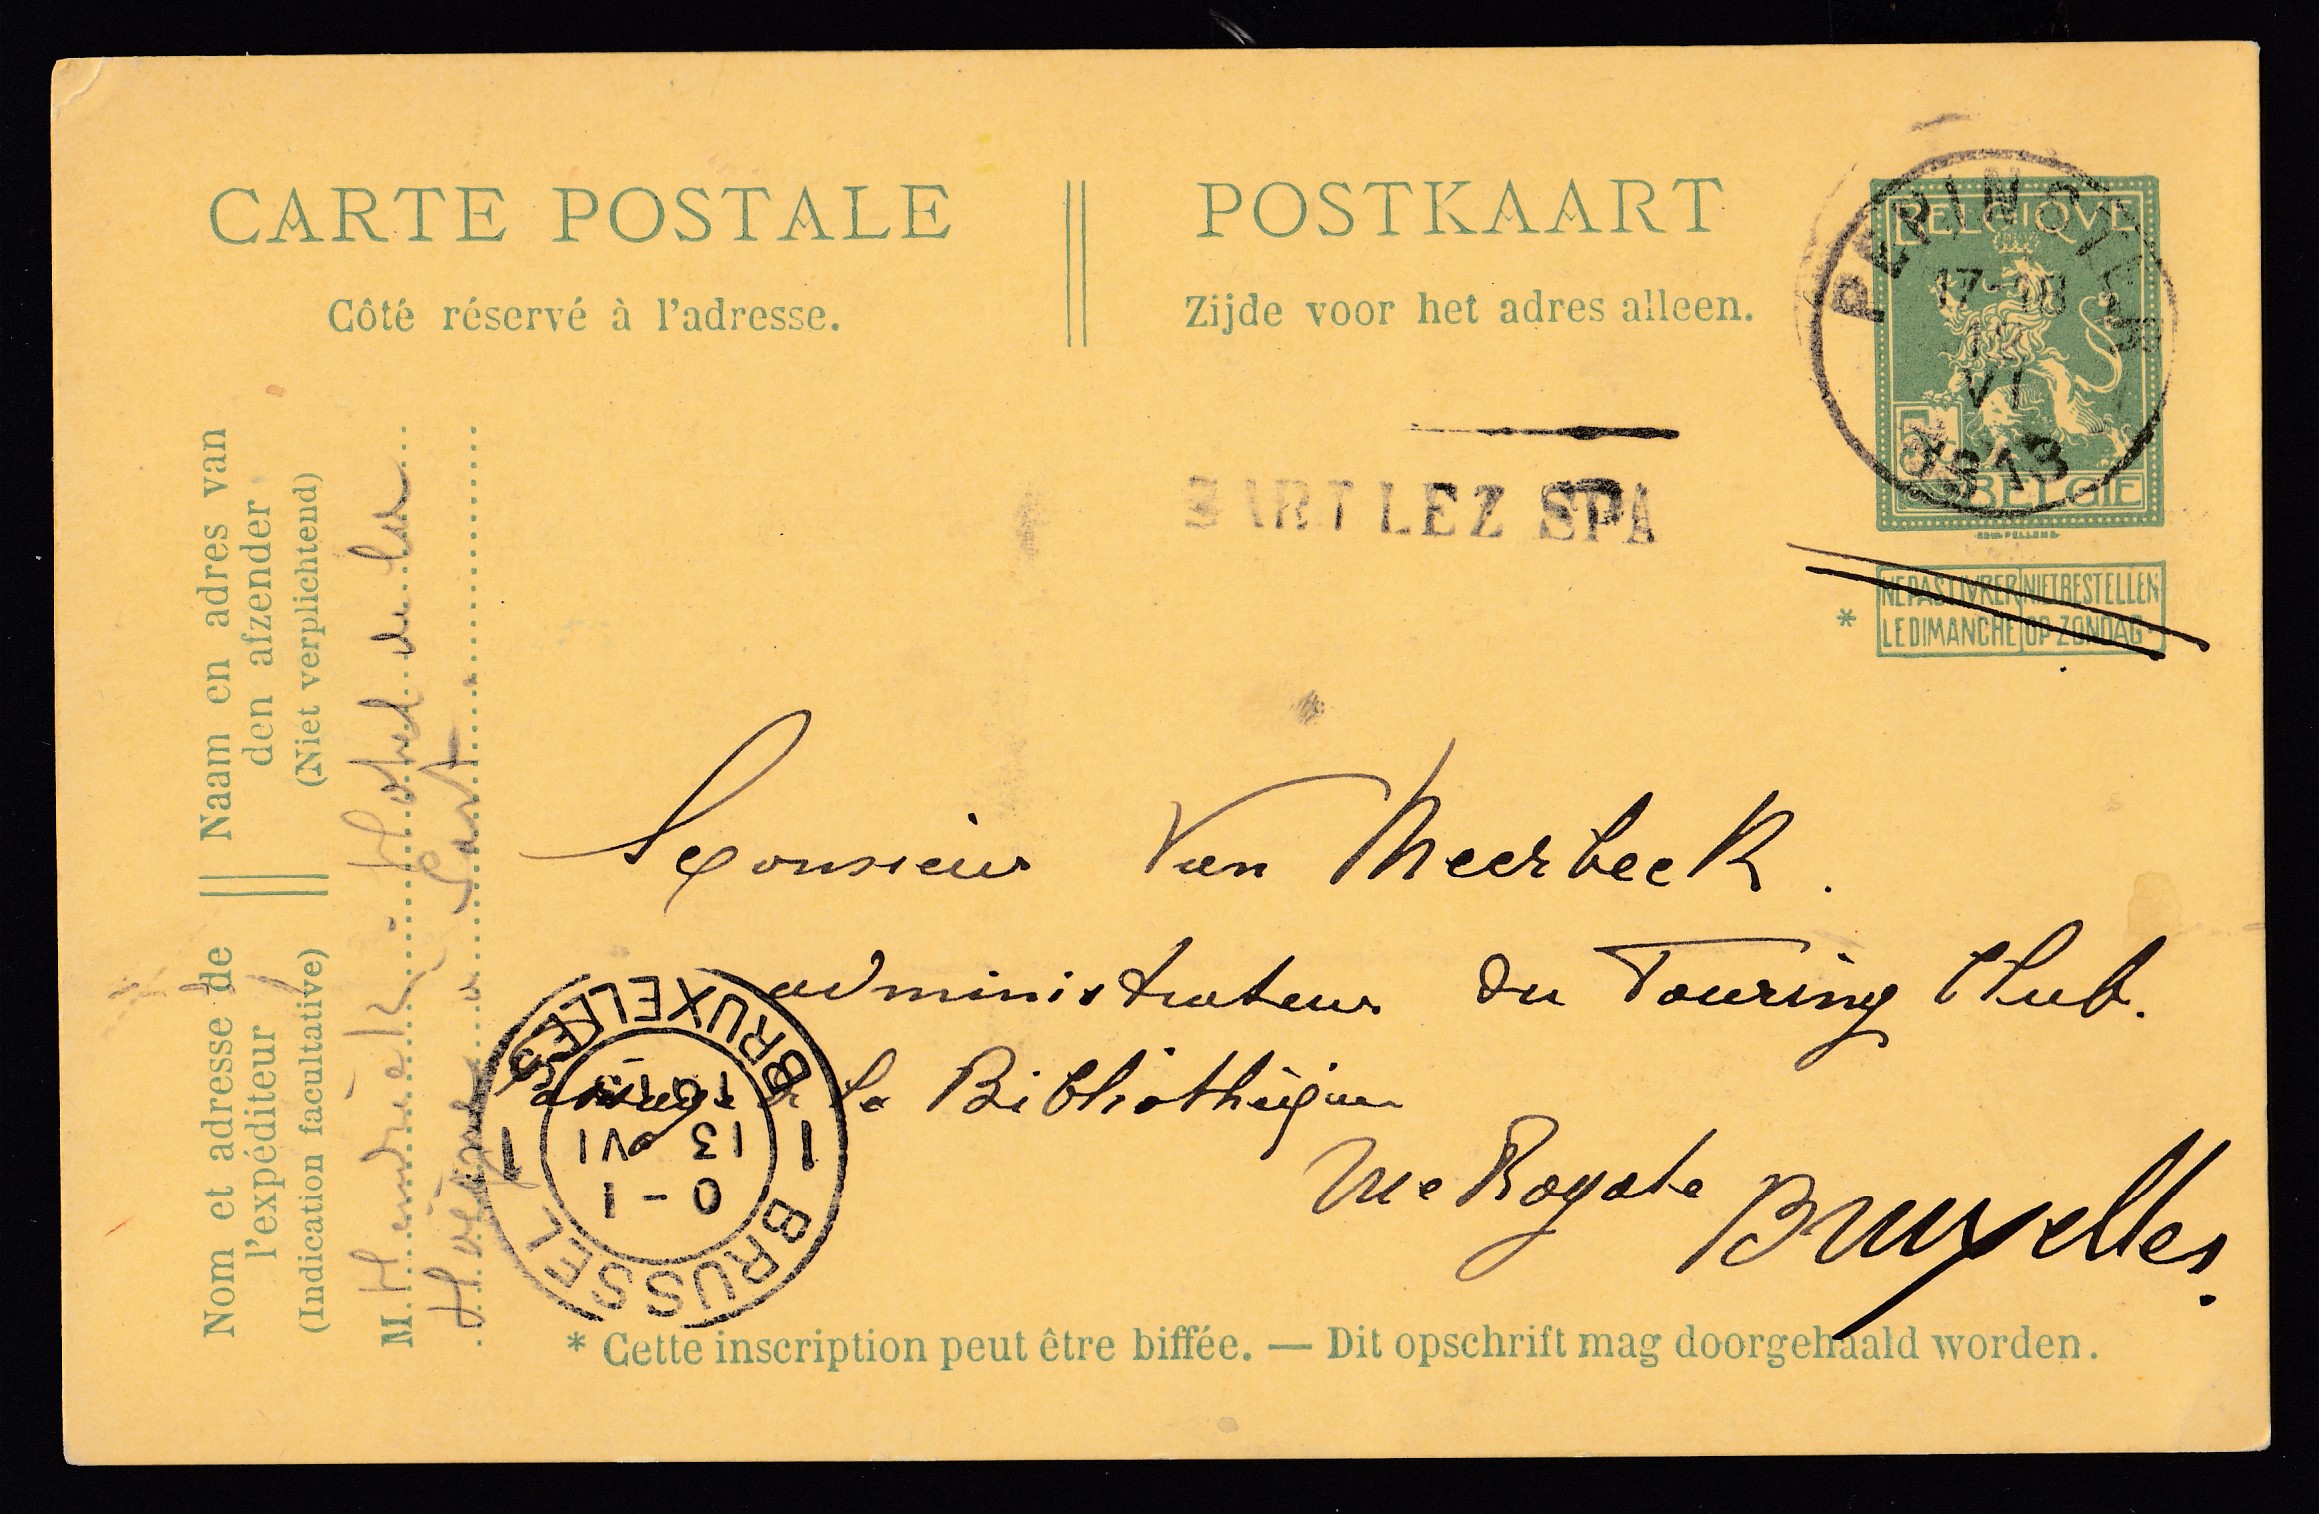 CARTE POSTALE
Côté réservé à l'adresse.
POSTKAART
Zijde voor het adres alleen.
BELGIQUE
5
BELGIË
PEPINSTER
17-18
VI
1913
SART LEZ SPA
NE PAS LIVRER LE DIMANCHE
NIET BESTELLEN OP ZONDAG
*
Naam en adres van
den afzender
(Niet verplichtend)
Nom et adresse de
l'expéditeur
(Indication facultative)
M. Hendrick Hotel de la
Sart
Monsieur Van Meerbeek.
administrateur du Touring Club.
Passage de la Bibliothèque
rue Royale
Bruxelles.
1 BRUXELLES 1 BRUSSEL
0-1
13 VI
1913
* Cette inscription peut être biffée. — Dit opschrift mag doorgehaald worden.